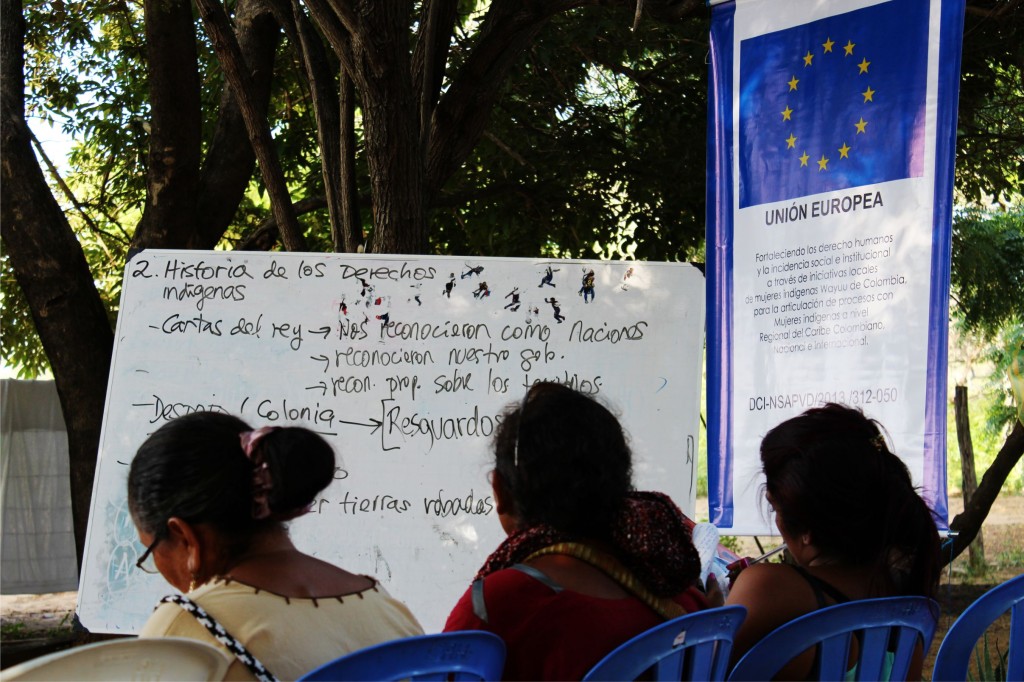 2. Historia de los Derechos
indígenas
- Cartas del rey → Nos reconocieron como naciones
→ reconocieron nuestro gob.
→ recon. prop. sobre los
Colonia → [Resguardos
tierras robadas
UNIÓN EUROPEA
Fortaleciendo los derecho humanos
y la incidencia social e institucional
a través de iniciativas locales
de mujeres indígenas Wayuu de Colombia,
para la articulación de procesos con
Mujeres indígenas a nivel
Regional del Caribe Colombiano,
Nacional e Internacional.
DCI-NSAPVD/2013/312-050